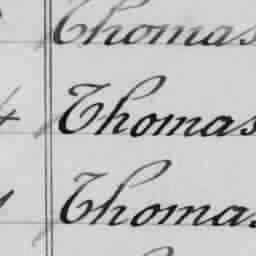 Thomas
4 Thomas
Thomas